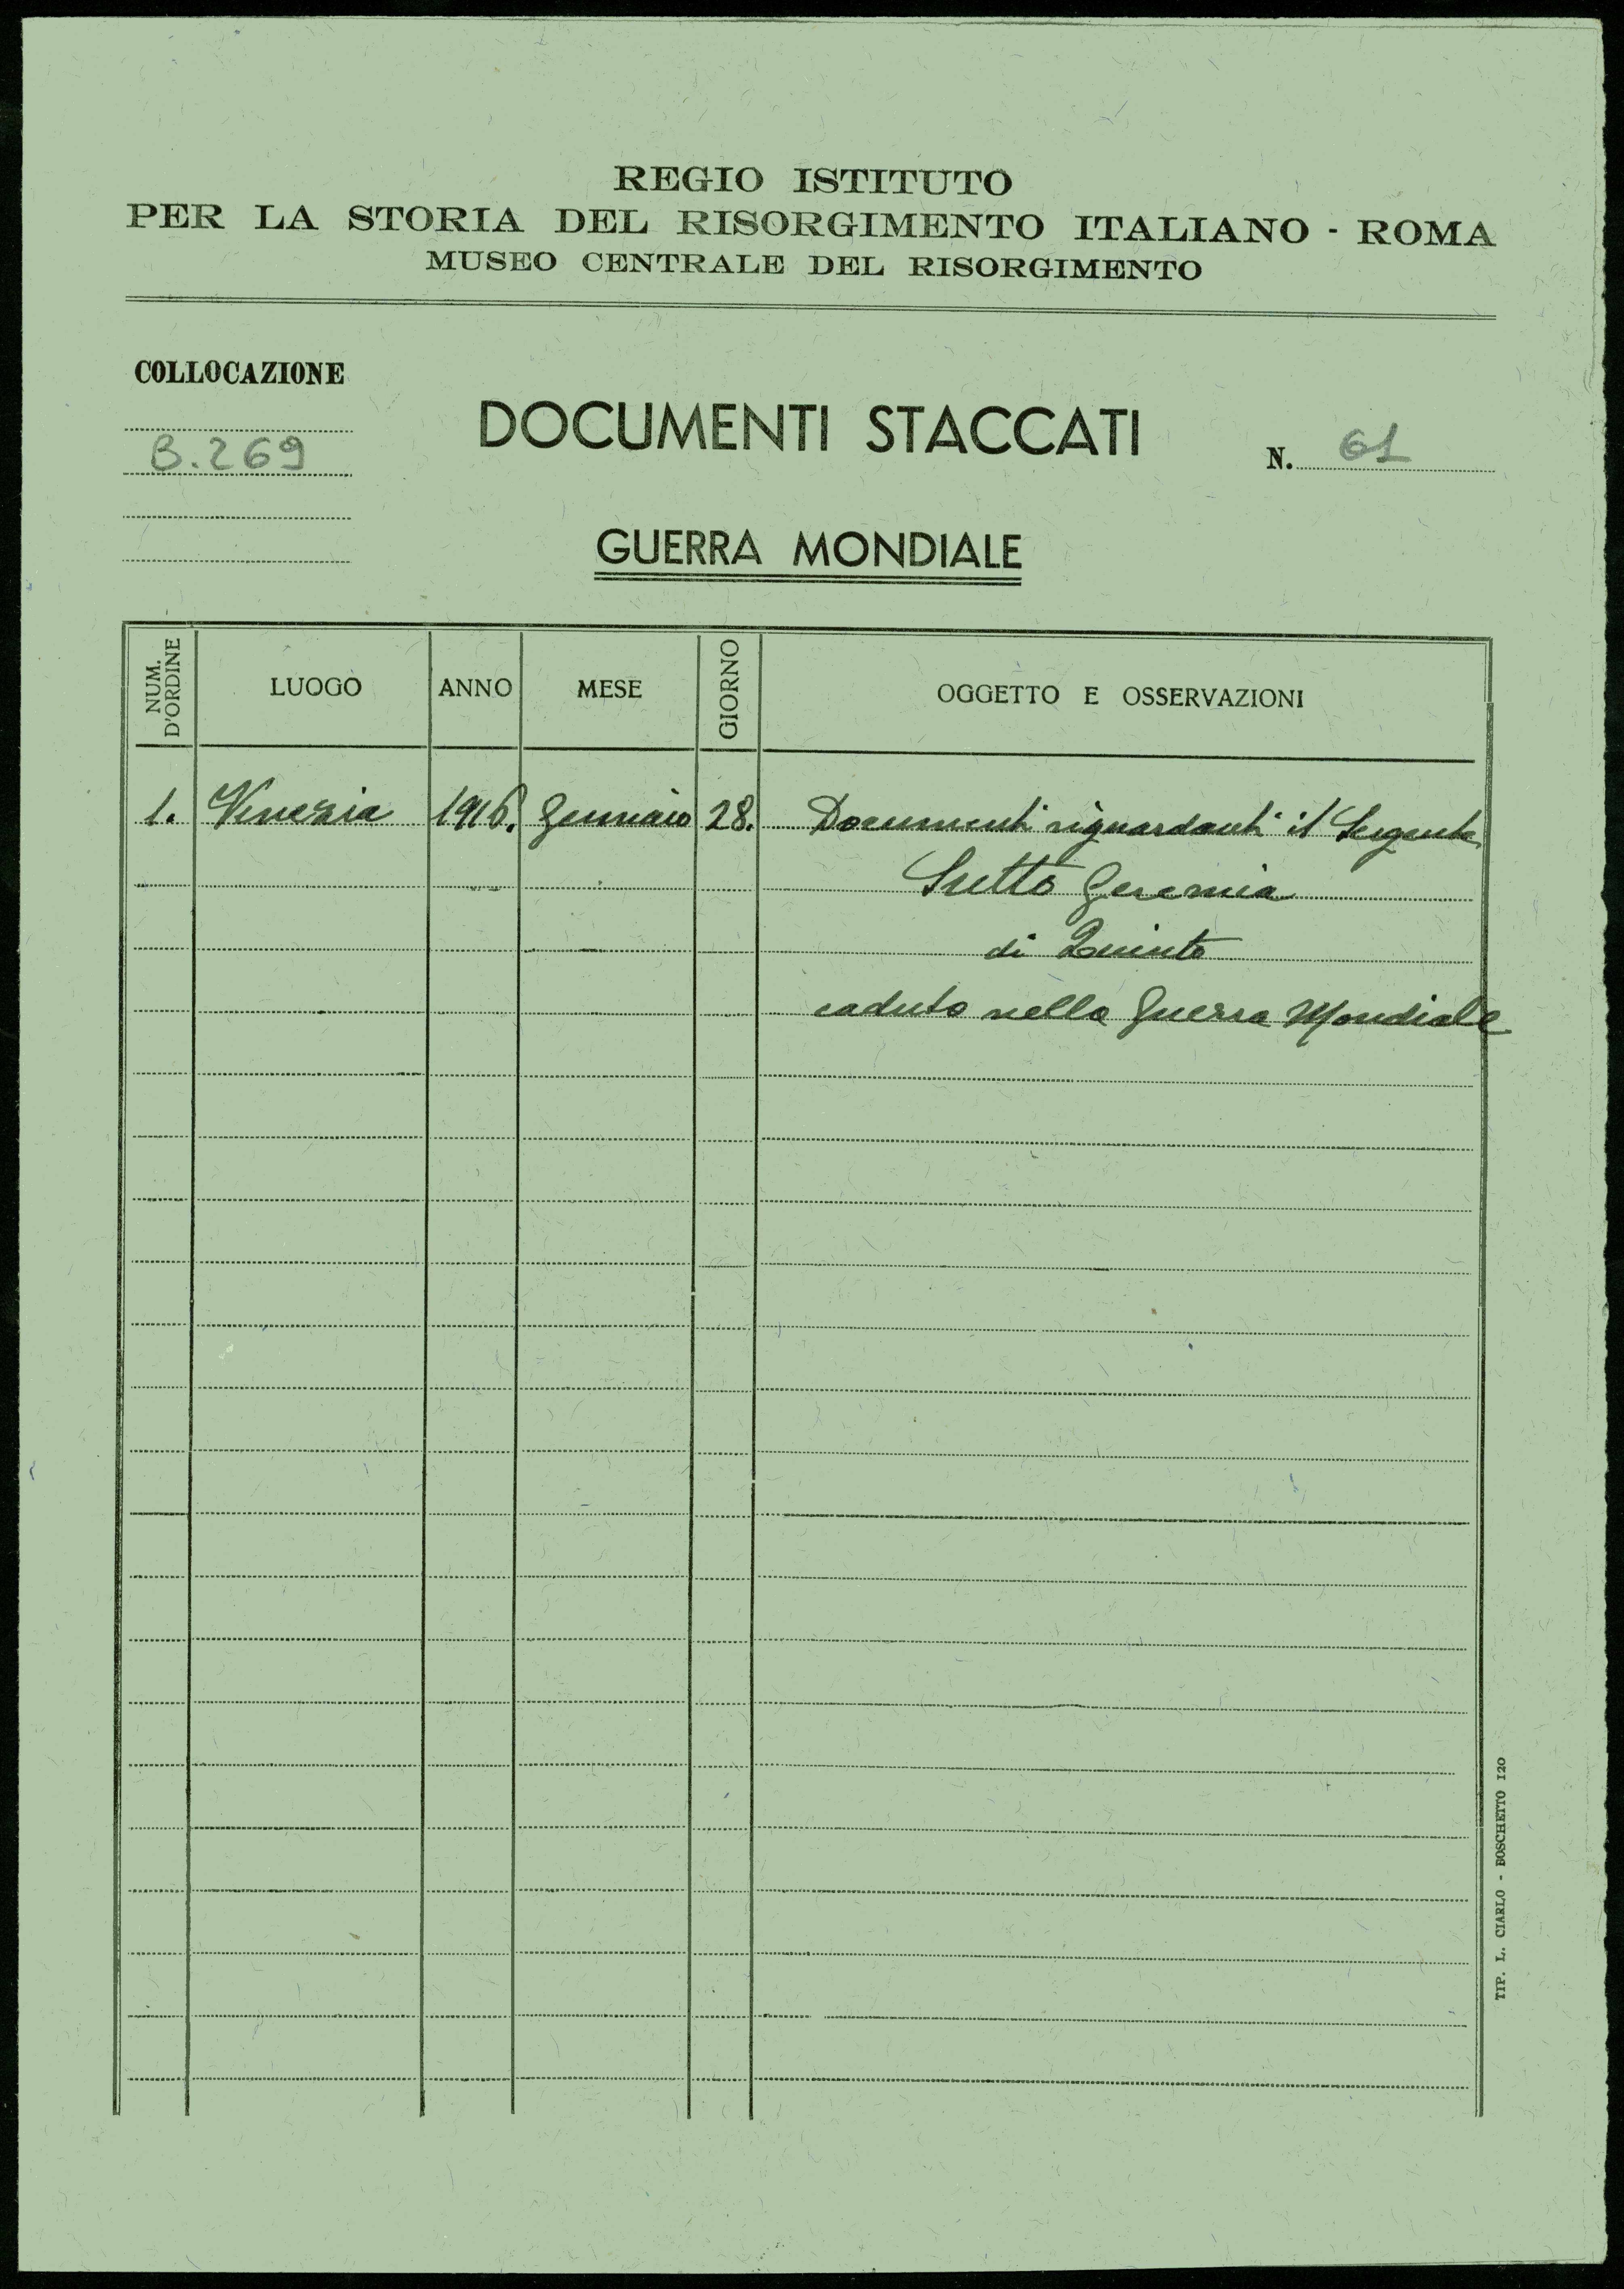 REGIO ISTITUTO
PER LA STORIA DEL RISORGIMENTO ITALIANO - ROMA
MUSEO CENTRALE DEL RISORGIMENTO
COLLOCAZIONE
B. 269
DOCUMENTI STACCATI
N. 61
GUERRA MONDIALE
NUM. D'ORDINE LUOGO ANNO MESE GIORNO OGGETTO E OSSERVAZIONI
1. Venezia 1916. Gennaio 28. Documenti riguardanti il Sergente
Geremia
di Quinto
caduto nella Guerra Mondiale
TIP. L. CIARLO - BOSCHETTO 120